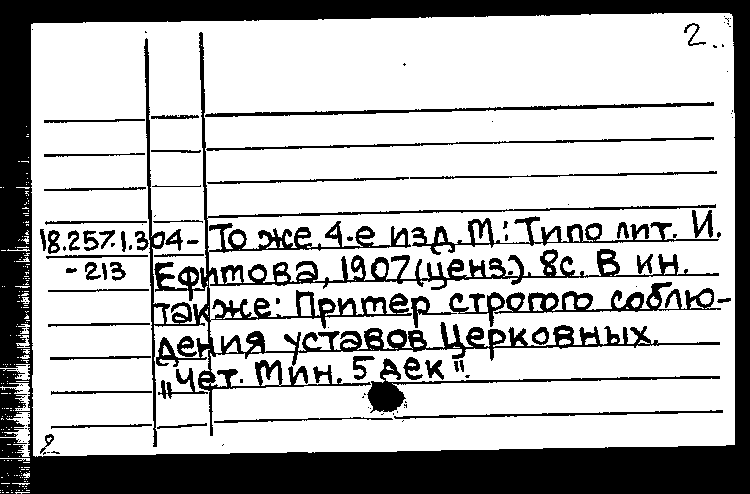 2..
18.257.1.304- То же. 4-е изд. М.: Типо лит. И.
-213 Ефимова, 1907(ценз.). 8с. В кн.
также: Пример строгого соблю-
дения уставов Церковных.
„Чет. Мин. 5 дек".
2